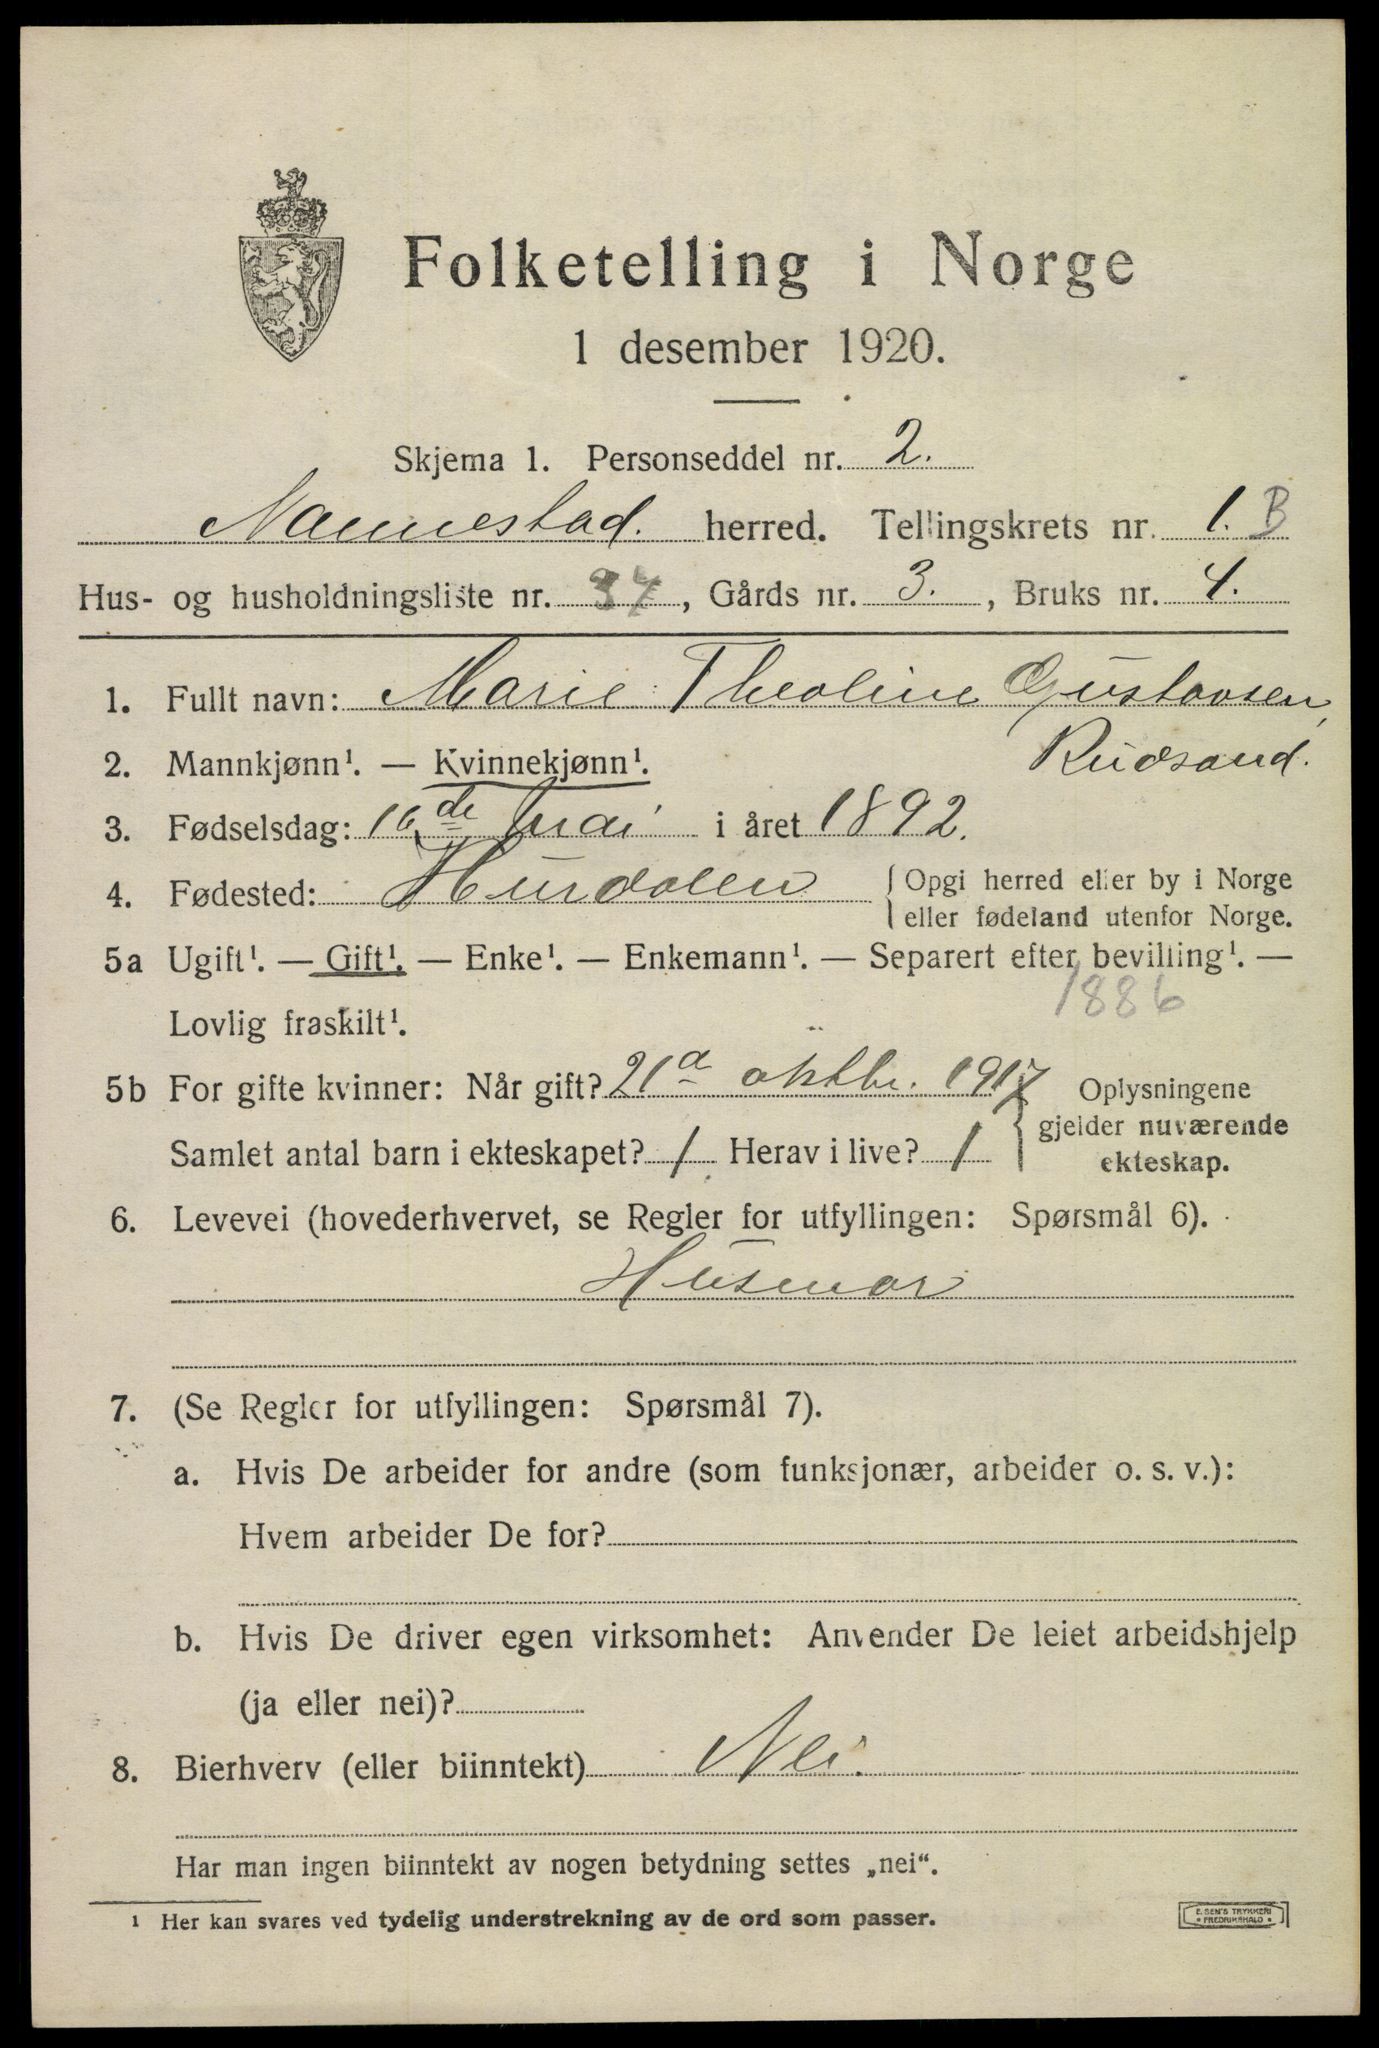 Folketelling i Norge
1 desember 1920.
Skjema 1. Personseddel nr. 2.
Nannestad. herred. Tellingskrets nr. 1. B
Hus- og husholdningsliste nr. 37, Gårds nr. 3., Bruks nr. 4.
1. Fullt navn: Marie Theoline Gustavsen,
Rudsand.
2. Mannkjønn¹. — Kvinnekjønn¹.
3. Fødselsdag: 16de mai i året 1892.
4. Fødested: Hurdalen { Opgi herred eller by i Norge
eller fødeland utenfor Norge.
5a Ugift¹. — Gift¹. — Enke¹. — Enkemann¹. — Separert efter bevilling¹. —
1886
Lovlig fraskilt¹.
5b For gifte kvinner: Når gift? 21d oktbr. 1917 } Oplysningene
gjelder nuværende
Samlet antal barn i ekteskapet? 1 Herav i live? 1 ekteskap.
6. Levevei (hovederhvervet, se Regler for utfyllingen: Spørsmål 6).
Husmor
7. (Se Regler for utfyllingen: Spørsmål 7).
a. Hvis De arbeider for andre (som funksjonær, arbeider o. s. v.):
Hvem arbeider De for?
b. Hvis De driver egen virksomhet: Anvender De leiet arbeidshjelp
(ja eller nei)?
8. Bierhverv (eller biinntekt) Nei.
Har man ingen biinntekt av nogen betydning settes „nei“.
¹ Her kan svares ved tydelig understrekning av de ord som passer.
E. SEN'S TRYKKERI
• FREDRIKSHALD •